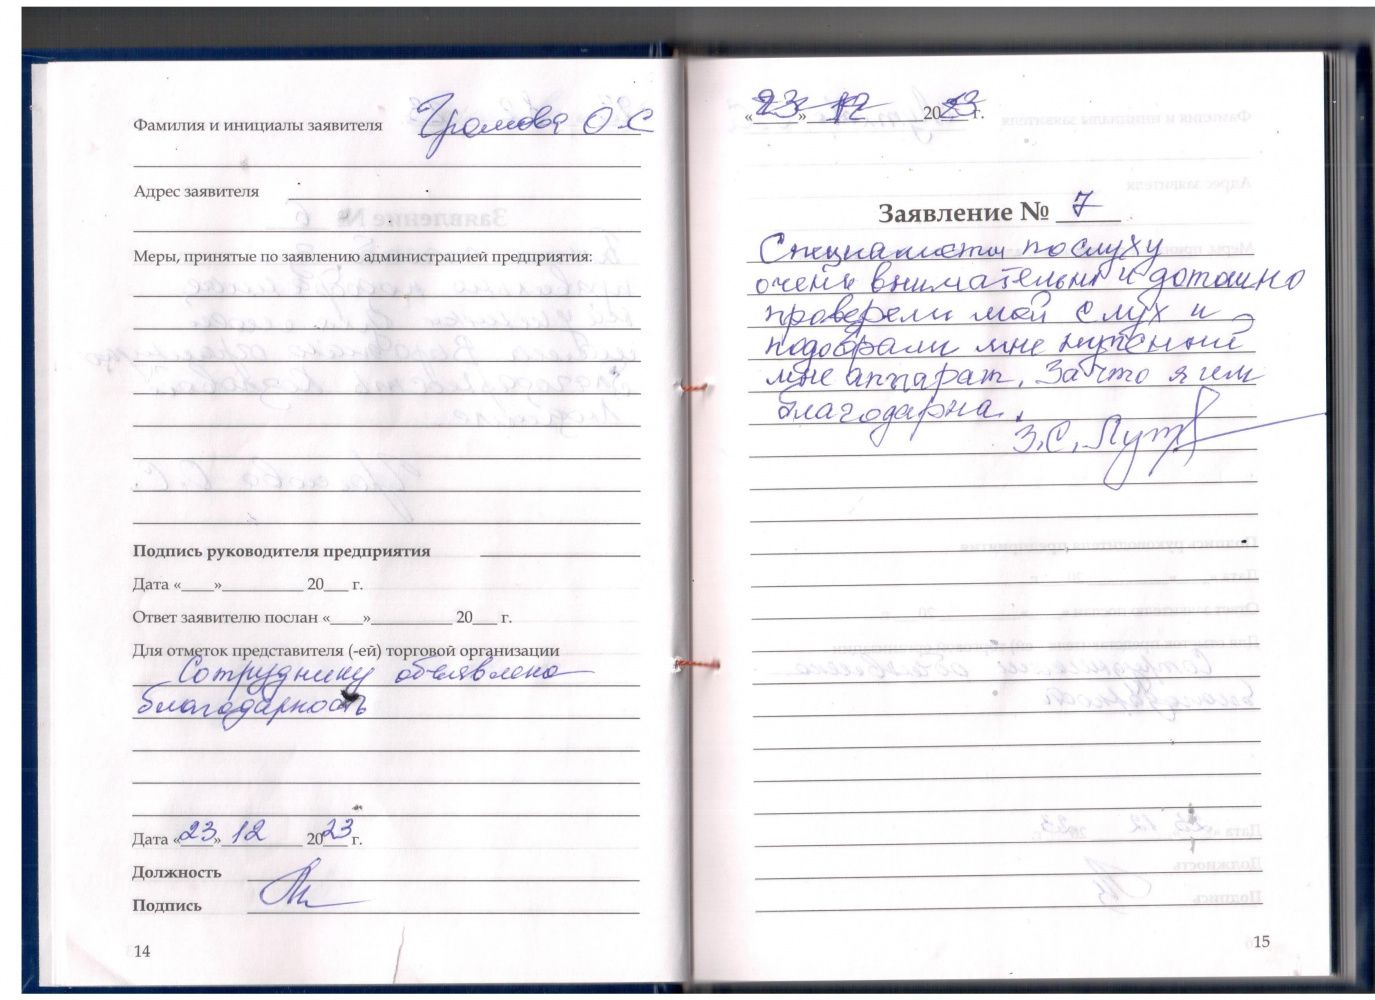 Фамилия и инициалы заявителя Громова О.С
Адрес заявителя
Меры, принятые по заявлению администрацией предприятия:
Подпись руководителя предприятия
Дата «___»__________ 20___ г.
Ответ заявителю послан «___»__________ 20___ г.
Для отметок представителя (-ей) торговой организации
Сотруднику объявлена
благодарность
Дата «23» 12 2023 г.
Должность
Подпись
14
«23» 12 2023 г.
Заявление № 7
Специалисты по слуху
очень внимательно и дотошно
проверели мой слух и
подобрали мне нуженый
мне аппарат. За что я им
благодарна.
З.С.
15